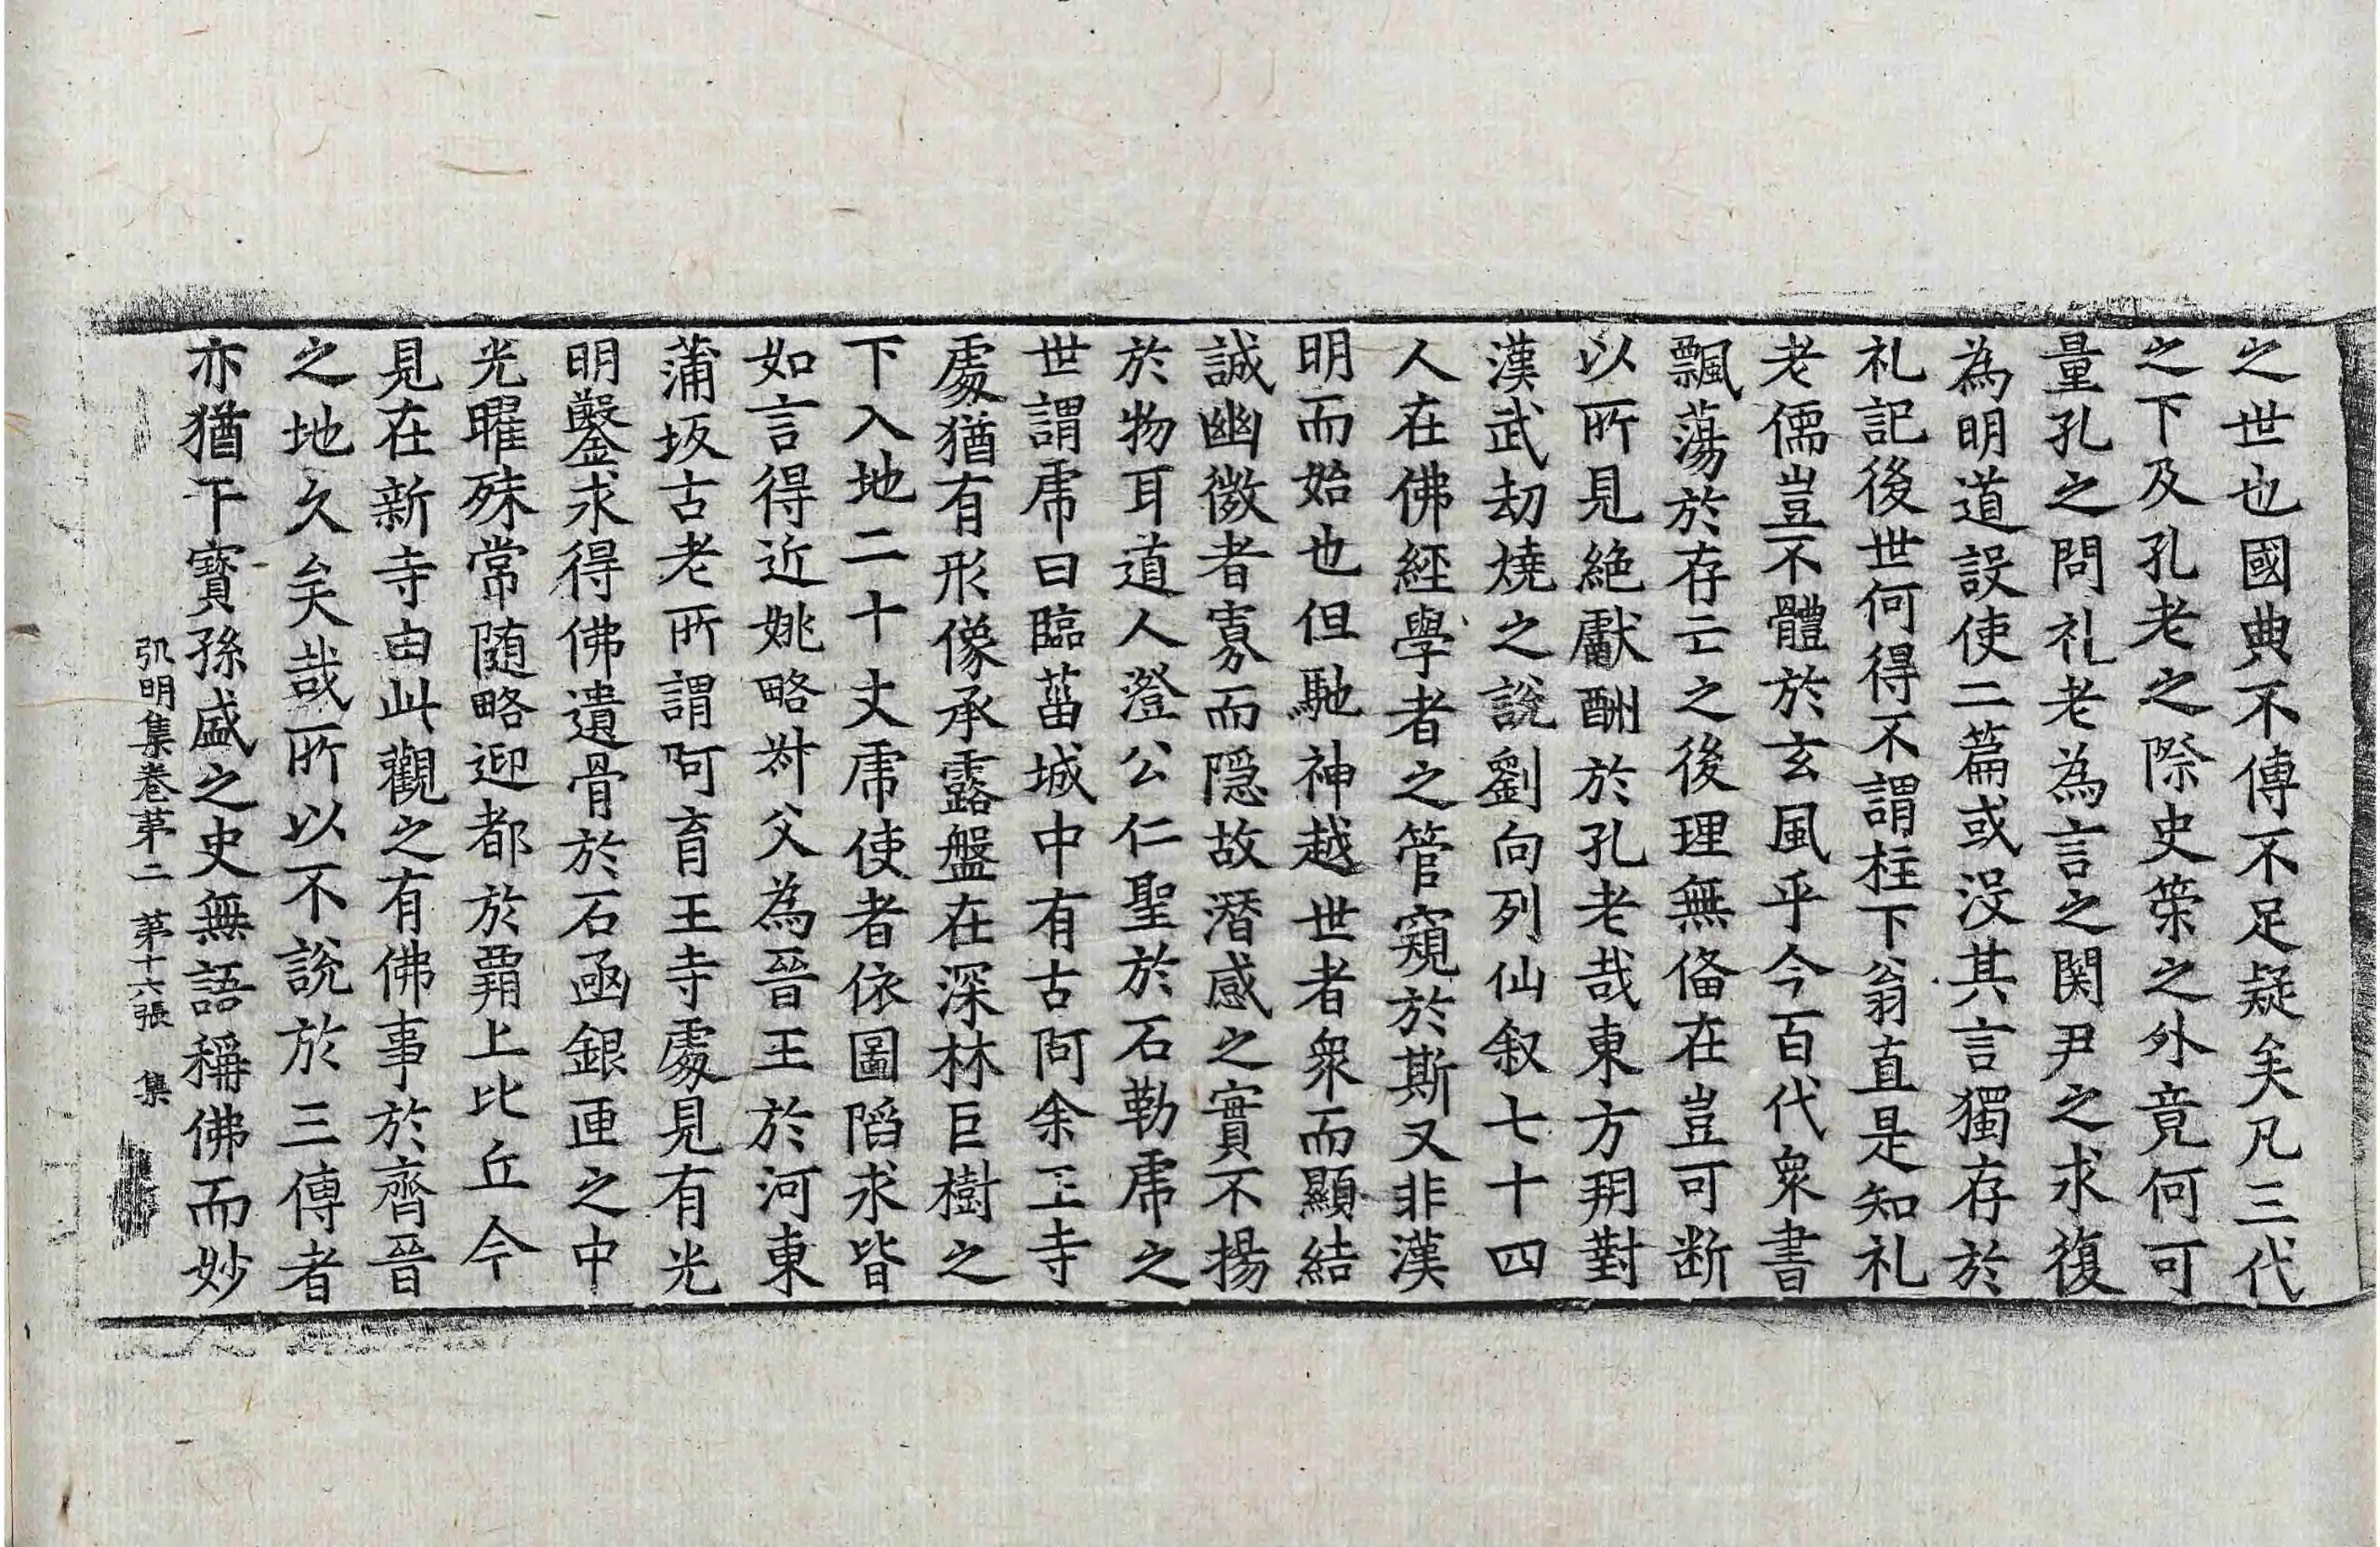 之世也國典不傳不足疑矣凡三代
之下及孔老之際史䇿之外竟何可
量孔之問礼老為言之関尹之求復
為明道設使二篇或没其言獨存於
礼記後世何得不謂柱下翁直是知礼
老儒豈不體於玄風乎今百代衆書
飄蕩於存亡之後理無俻在豈可断
以所見絶獻酬於孔老哉東方朔對
漢武劫燒之說劉向列仙叙七十四
人在佛經學者之管窺於斯又非漢
明而始也但馳神越世者衆而顯結
誠幽微者寡而隠故潛感之實不揚
於物耳道人澄公仁聖於石勒虎之
世謂虎曰臨菑城中有古阿余王寺
處猶有形像承露盤在深林巨樹之
下入地二十丈虎使者依圖掐求皆
如言得近姚略叔父為晉王於河東
蒲坂古老所謂阿育王寺處見有光
明鑿求得佛遺骨於石函銀匣之中
光曜殊常随略迎都於覇上比丘今
見在新寺由此觀之有佛事於齊晉
之地久矣哉所以不說於三傳者
亦猶干寳孫盛之史無語稱佛而妙
弘明集卷第二 第十六張 集